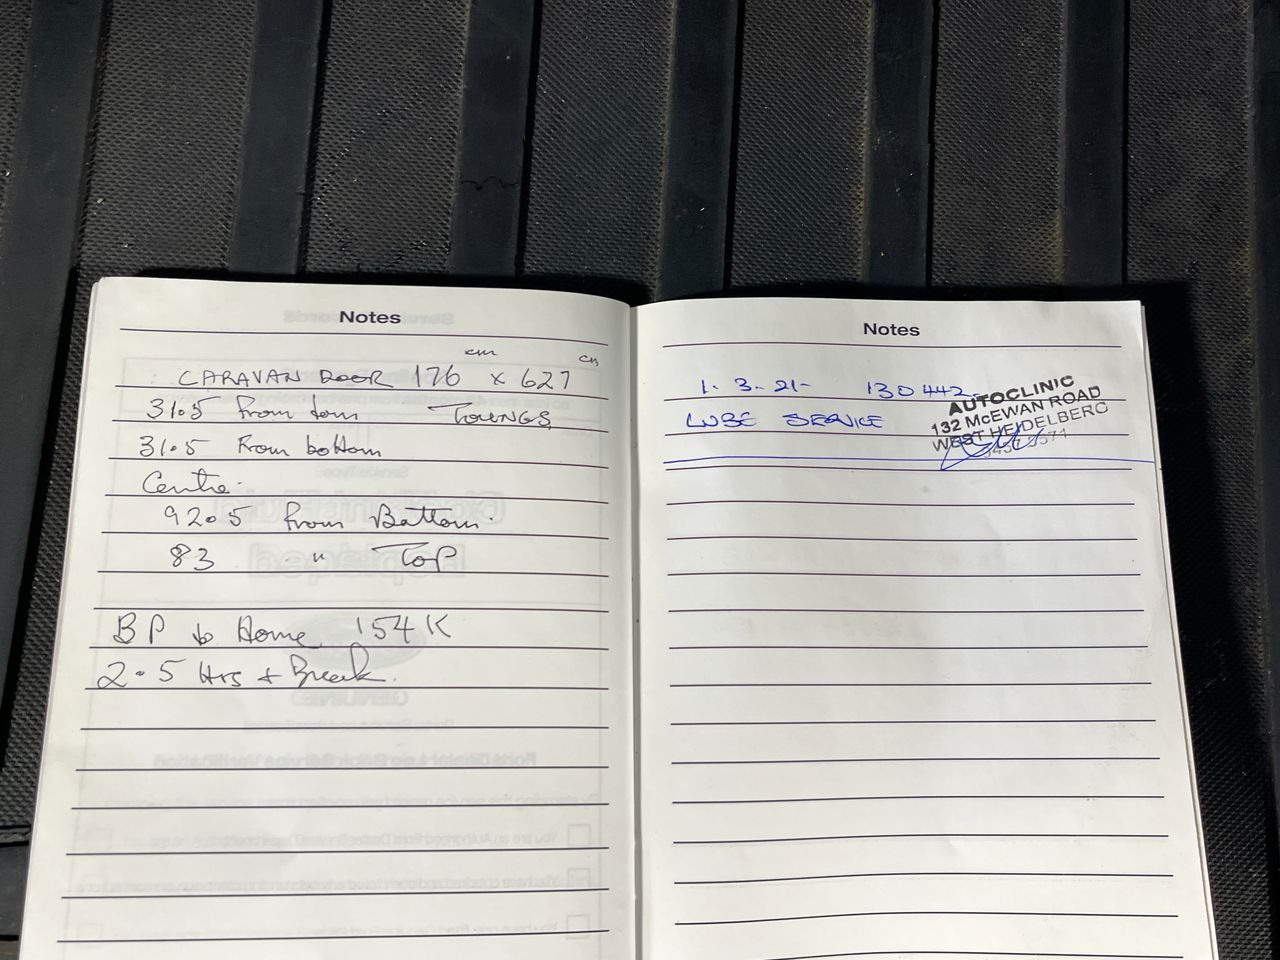 Notes
cm cm
CARAVAN DOOR 176 x 627
31.5 from TOUNGS
31.5 From bottom
Centre.
92.5 from Bottom.
83 " TOP
BP to Home 154K
2.5 Hrs + Break.
Notes
1. 3. 21- 130442
LUBE SERVICE
AUTOCLINIC
132 McEWAN ROAD
WEST HEIDELBERG